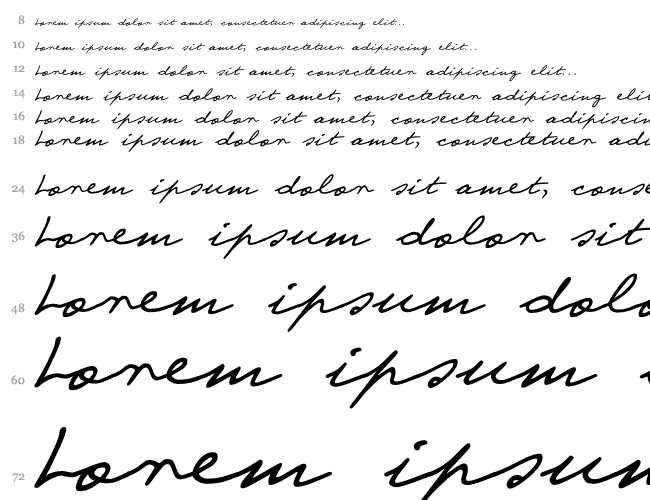 8 Lorem ipsum dolor sit amet, consectetuer adipiscing elit...
10 Lorem ipsum dolor sit amet, consectetuer adipiscing elit...
12 Lorem ipsum dolor sit amet, consectetuer adipiscing elit...
14 Lorem ipsum dolor sit amet, consectetuer adipiscing elit
16 Lorem ipsum dolor sit amet, consectetuer adipiscin
18 Lorem ipsum dolor sit amet, consectetuer adi
24 Lorem ipsum dolor sit amet, conse
36 Lorem ipsum dolor sit
48 Lorem ipsum dolo
60 Lorem ipsum
72 Lorem ipsum